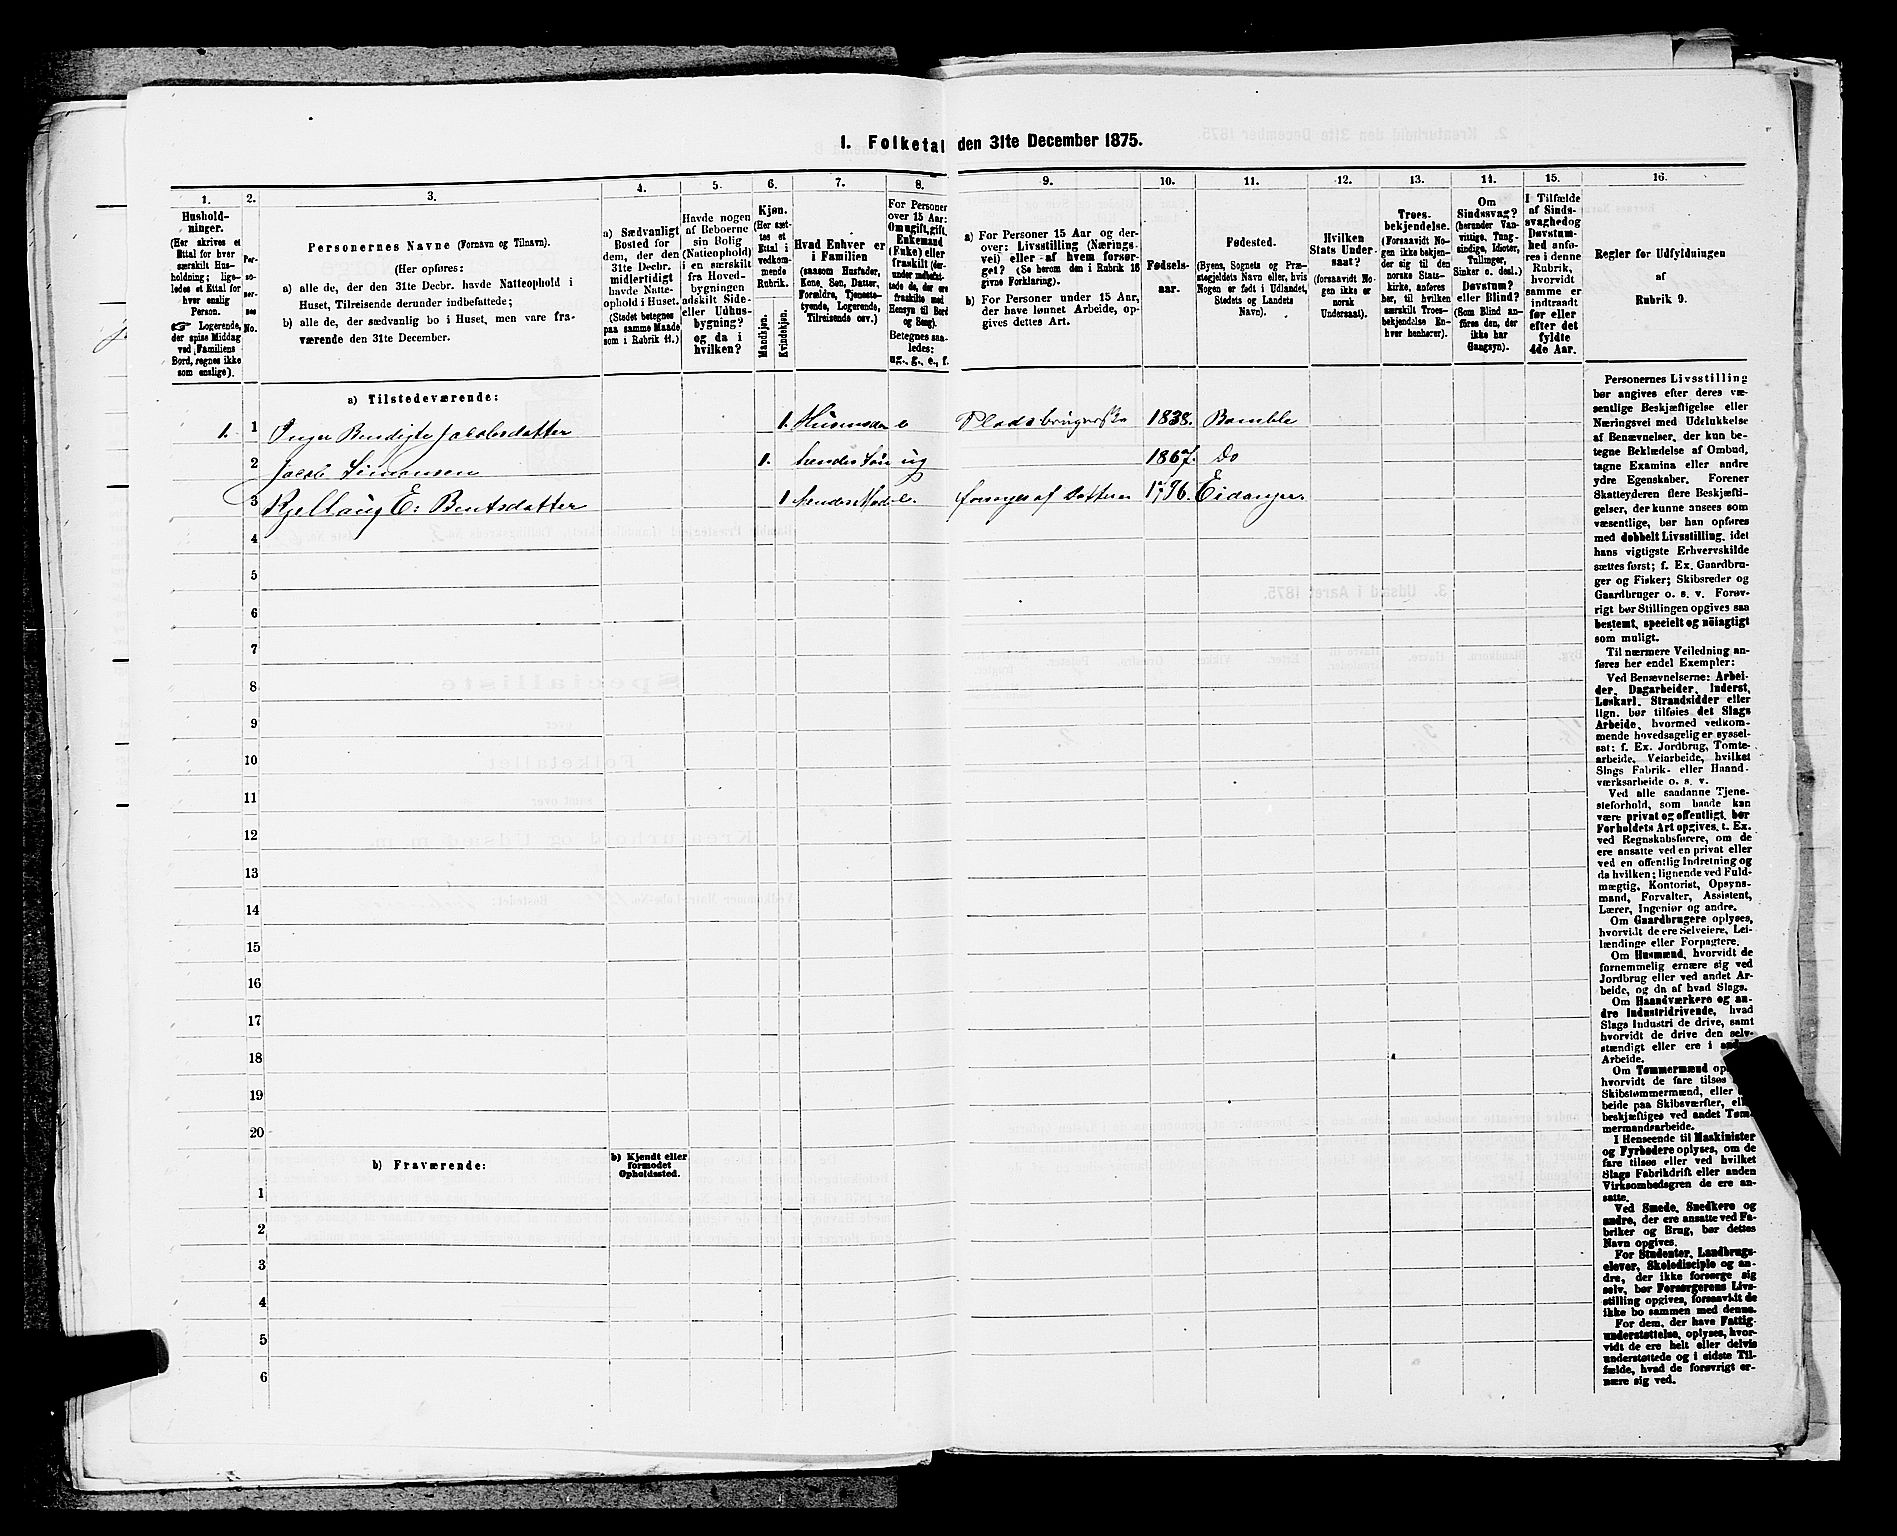 1. Folketal den 31te December 1875.
1. 2. 3. 4. 5. 6. 7. 8. 9. 10. 11. 12. 13. 14. 15. 16.
Hushold-
ninger.
(Her skrives et
Ettal for hver
særskilt Hus-
holdning; lige-
ledes et Ettal for
hver enslig
Person.
☞ Logerende,
der spise Middag
ved Familiens
Bord, regnes ikke
som enslige).
Per-
so-
ner-
nes
No.
Personernes Navne (Fornavn og Tilnavn).
(Her opføres:
a) alle de, der den 31te Decbr. havde Natteophold i
Huset, Tilreisende derunder indbefattede;
b) alle de, der sædvanlig bo i Huset, men vare fra-
værende den 31te December.
a) Sædvanligt
Bosted for
dem, der den
31te Decbr.
midlertidigt
havde Natte-
ophold i Huset.
(Stedet betegnes
paa samme Maade
som i Rubrik 11.)
Havde nogen
af Beboerne
sin Bolig
(Natteophold)
i en særskilt
fra Hoved-
bygningen
adskilt Side-
eller Udhus-
bygning?
og da i
hvilken?
Kjøn.
(Her sæt-
tes et
Ettal i
vedkom-
mende
Rubrik.
Mandkjøn.
Kvindekjøn.
Hvad Enhver er
i Familien
(saasom Husfader,
Kone, Søn, Datter,
Forældre, Tjeneste-
tyende, Logerende,
Tilreisende osv.)
For Personer
over 15 Aar:
Om ugift, gift,
Enkemand
(Enke) eller
fraskilt (der-
under indbefat-
tede de, der ere
fraskilte med
Hensyn til Bord
og Seng).
Betegnes saa-
ledes:
ug., g., e., f.
a) For Personer 15 Aar og der-
over: Livsstilling (Nærings-
vei) eller af hvem forsør-
get? (Se herom den i Rubrik 16
givne Forklaring).
b) For Personer under 15 Aar,
der have lønnet Arbeide, op-
gives dettes Art.
Fødsels-
aar.
Fødested.
(Byens, Sognets og Præ-
stegjeldets Navn eller, hvis
Nogen er født i Udlandet,
Stedets og Landets
Navn).
Hvilken
Stats Under-
saat?
(forsaavidt No-
gen ikke er
norsk
Undersaat).
Troes-
bekjendelse.
(Forsaavidt No-
gen ikke bekjen-
der sig til den
norske Stats-
kirke, anføres
her, til hvilken
særskilt Troes-
bekjendelse En-
hver henhører).
Om
Sindssvag?
(herunder Van-
vittige, Tung-
sindige, Idioter,
Tullinger,
Sinker o. desl.)
Døvstum?
eller Blind?
(Som Blind an-
føres den, der
ikke har
Gangsyn).
I Tilfælde
af Sinds-
svaghed og
Døvstum-
hed anfø-
res i denne
Rubrik,
hvorvidt
samme er
indtraadt
før eller
efter det
fyldte
4de Aar.
Regler for Udfyldningen
af
Rubrik 9.
a) Tilstedeværende:
1. 1 Inger Bendigte Jacobsdatter 1. e Pladsbrugerske 1838. Bamble
2 Jacob Simonsen 1. hendes Søn ug 1867. Do
3 Kjellaug E: Bentsdatter 1 hendes Mod e. forsørges af Datteren 1796. Eidanger
4
5
6
7
8
9
10
11
12
13
14
15
16
17
18
19
20
b) Fraværende:
b) Kjendt eller
formodet
Opholdssted.
1
2
3
4
5
6
Personernes Livsstilling
bør angives efter deres væ-
sentlige Beskjæftigelse eller
Næringsvei med Udelukkelse
af Benævnelser, der kun be-
tegne Beklædelse af Ombud,
tagne Examina eller andre
ydre Egenskaber. Forener
Skatteyderen flere Beskjæfti-
gelser, der kunne ansees som
væsentlige, bør han opføres
med dobbelt Livsstilling, idet
hans vigtigste Erhvervskilde
sættes først; f. Ex. Gaardbru-
ger og Fisker; Skibsreder og
Gaardbruger o. s. v. Forøv-
rigt bør Stillingen opgives saa
bestemt, specielt og nöiagtigt
som muligt.
Til nærmere Veiledning an-
føres her endel Exempler:
Ved Benævnelserne: Arbei-
der, Dagarbeider, Inderst,
Løskarl, Strandsidder eller
lign. bør tilføies det Slags
Arbeide, hvormed vedkom-
mende hovedsagelig er syssel-
sat; f. Ex. Jordbrug, Tomte-
arbeide, Veiarbeide, hvilket
Slags Fabrik- eller Haand-
værksarbeide o. s. v.
Ved alle saadanne Tjene-
steforhold, som baade kan
være privat og offentligt, bør
Forholdets Art opgives, t. Ex.
ved Regnskabsførere, om de
ere ansatte ved en privat eller
ved en offentlig Indretning og
da hvilken; lignende ved Fuld-
mægtig, Kontorist, Opsyns-
mand, Forvalter, Assistent,
Lærer, Ingeniør og andre.
Om Gaardbrugere oplyses,
hvorvidt de ere Selveiere, Lei-
lændinge eller Forpagtere.
Om Husmænd, hvorvidt de
fornemmelig ernære sig ved
Jordbrug eller ved andet Ar-
beide, og da af hvad Slags.
Om Haandværkere og an-
dre Industridrivende, hvad
Slags Industri de drive, samt
hvorvidt de drive den selv-
stændigt eller ere i
Arbeide.
Om Tømmermænd
hvorvidt de fare tilsøs
Skibstømmermænd, eller
beide paa Skibsværfter,
beskjæftiges ved andet Tøm-
mermandsarbeide.
I Henseende til Maskinister
og Fyrbødere oplyses, om de
fare tilsøs eller ved hvilket
Slags Fabrikdrift eller anden
Virksomhedsgren de ere an-
satte.
Ved Smede, Snedkere og
andre, der ere ansatte ved Fa-
briker og Brug, bør dettes
Navn opgives.
For Studenter, Landbrugs-
elever, Skoledisciple og an-
dre, der ikke forsørge sig
selv, bør Forsørgerens Livs-
stilling opgives, forsaavidt de
ikke bo sammen med denne.
For dem, der have Fattig-
understøttelse, oplyses, hvor-
vidt de ere helt eller delvis
understøttede og i sidste Til-
fælde, hvad de forøvrigt er-
nære sig ved.